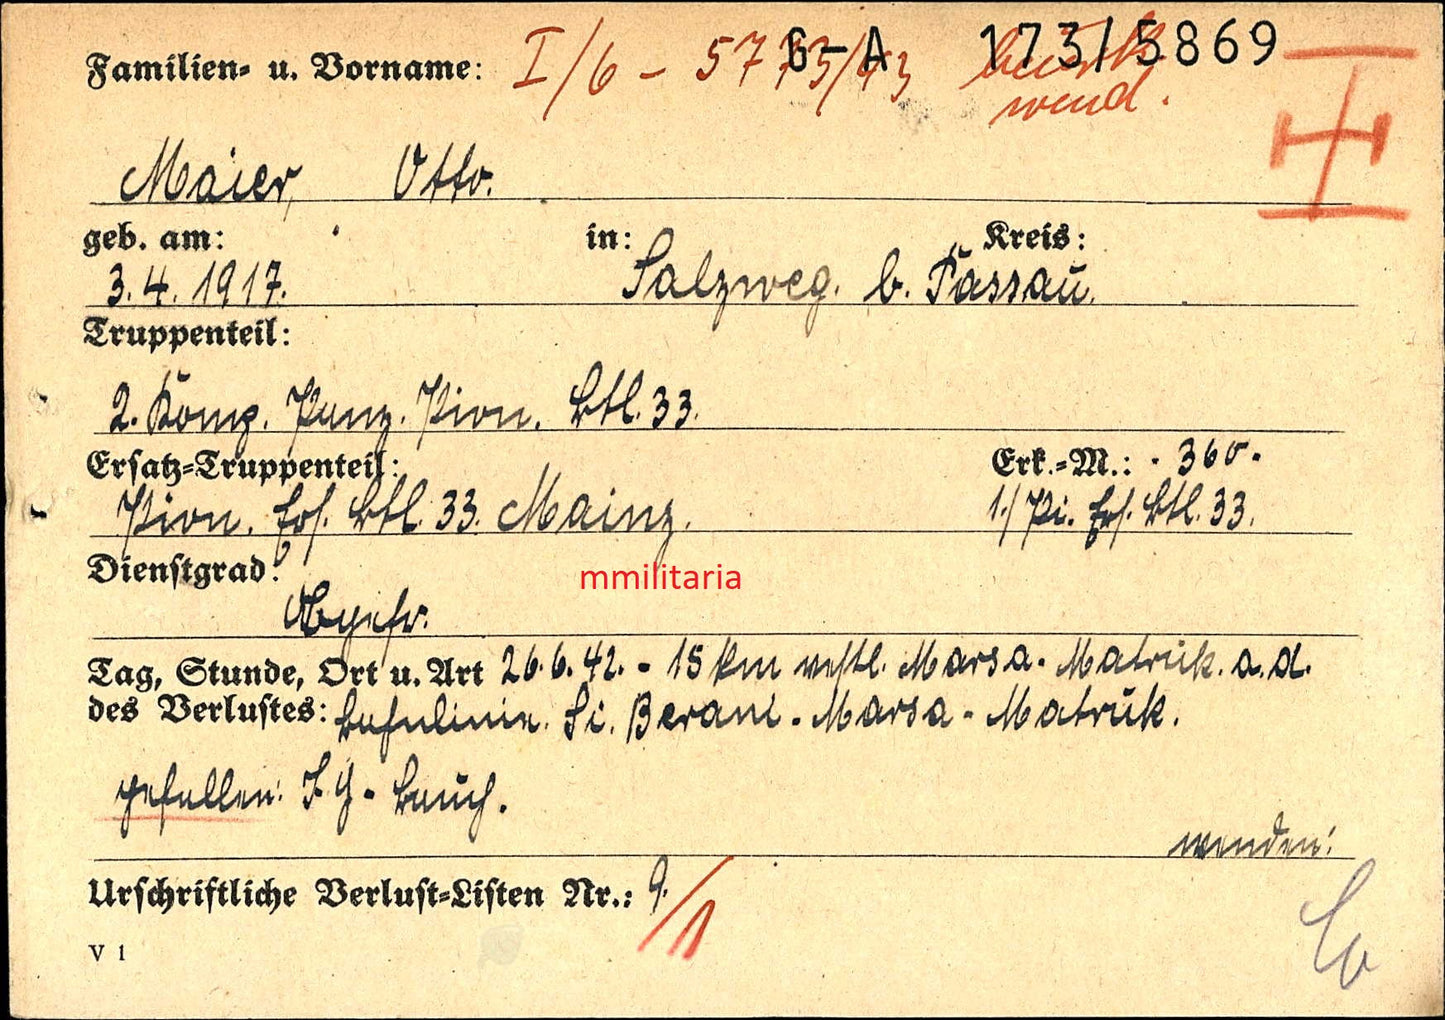 Familien- u. Vorname: I/6 - 5773/43 6-A 173/5869
wend.
Maier, Otto.
geb. am: in: Kreis:
3.4.1917. Salzweg. b. Passau.
Truppenteil:
2. Komp. Panz. Pion. Btl. 33.
Ersatz-Truppenteil: Erk.-M.: · 360 ·
Pion. Ers. Btl. 33. Mainz. 1./Pi. Ers. Btl. 33.
Dienstgrad:
mmilitaria
Obgefr.
Tag, Stunde, Ort u. Art 26.6.42. - 15 km westl. Marsa-Matruk. a. d.
des Verlustes: Bahnlinie. Si. Barani - Marsa - Matruk.
gefallen: I.G. - Bauch.
wenden!
Urschriftliche Verlust-Listen Nr.: 9./1
V 1